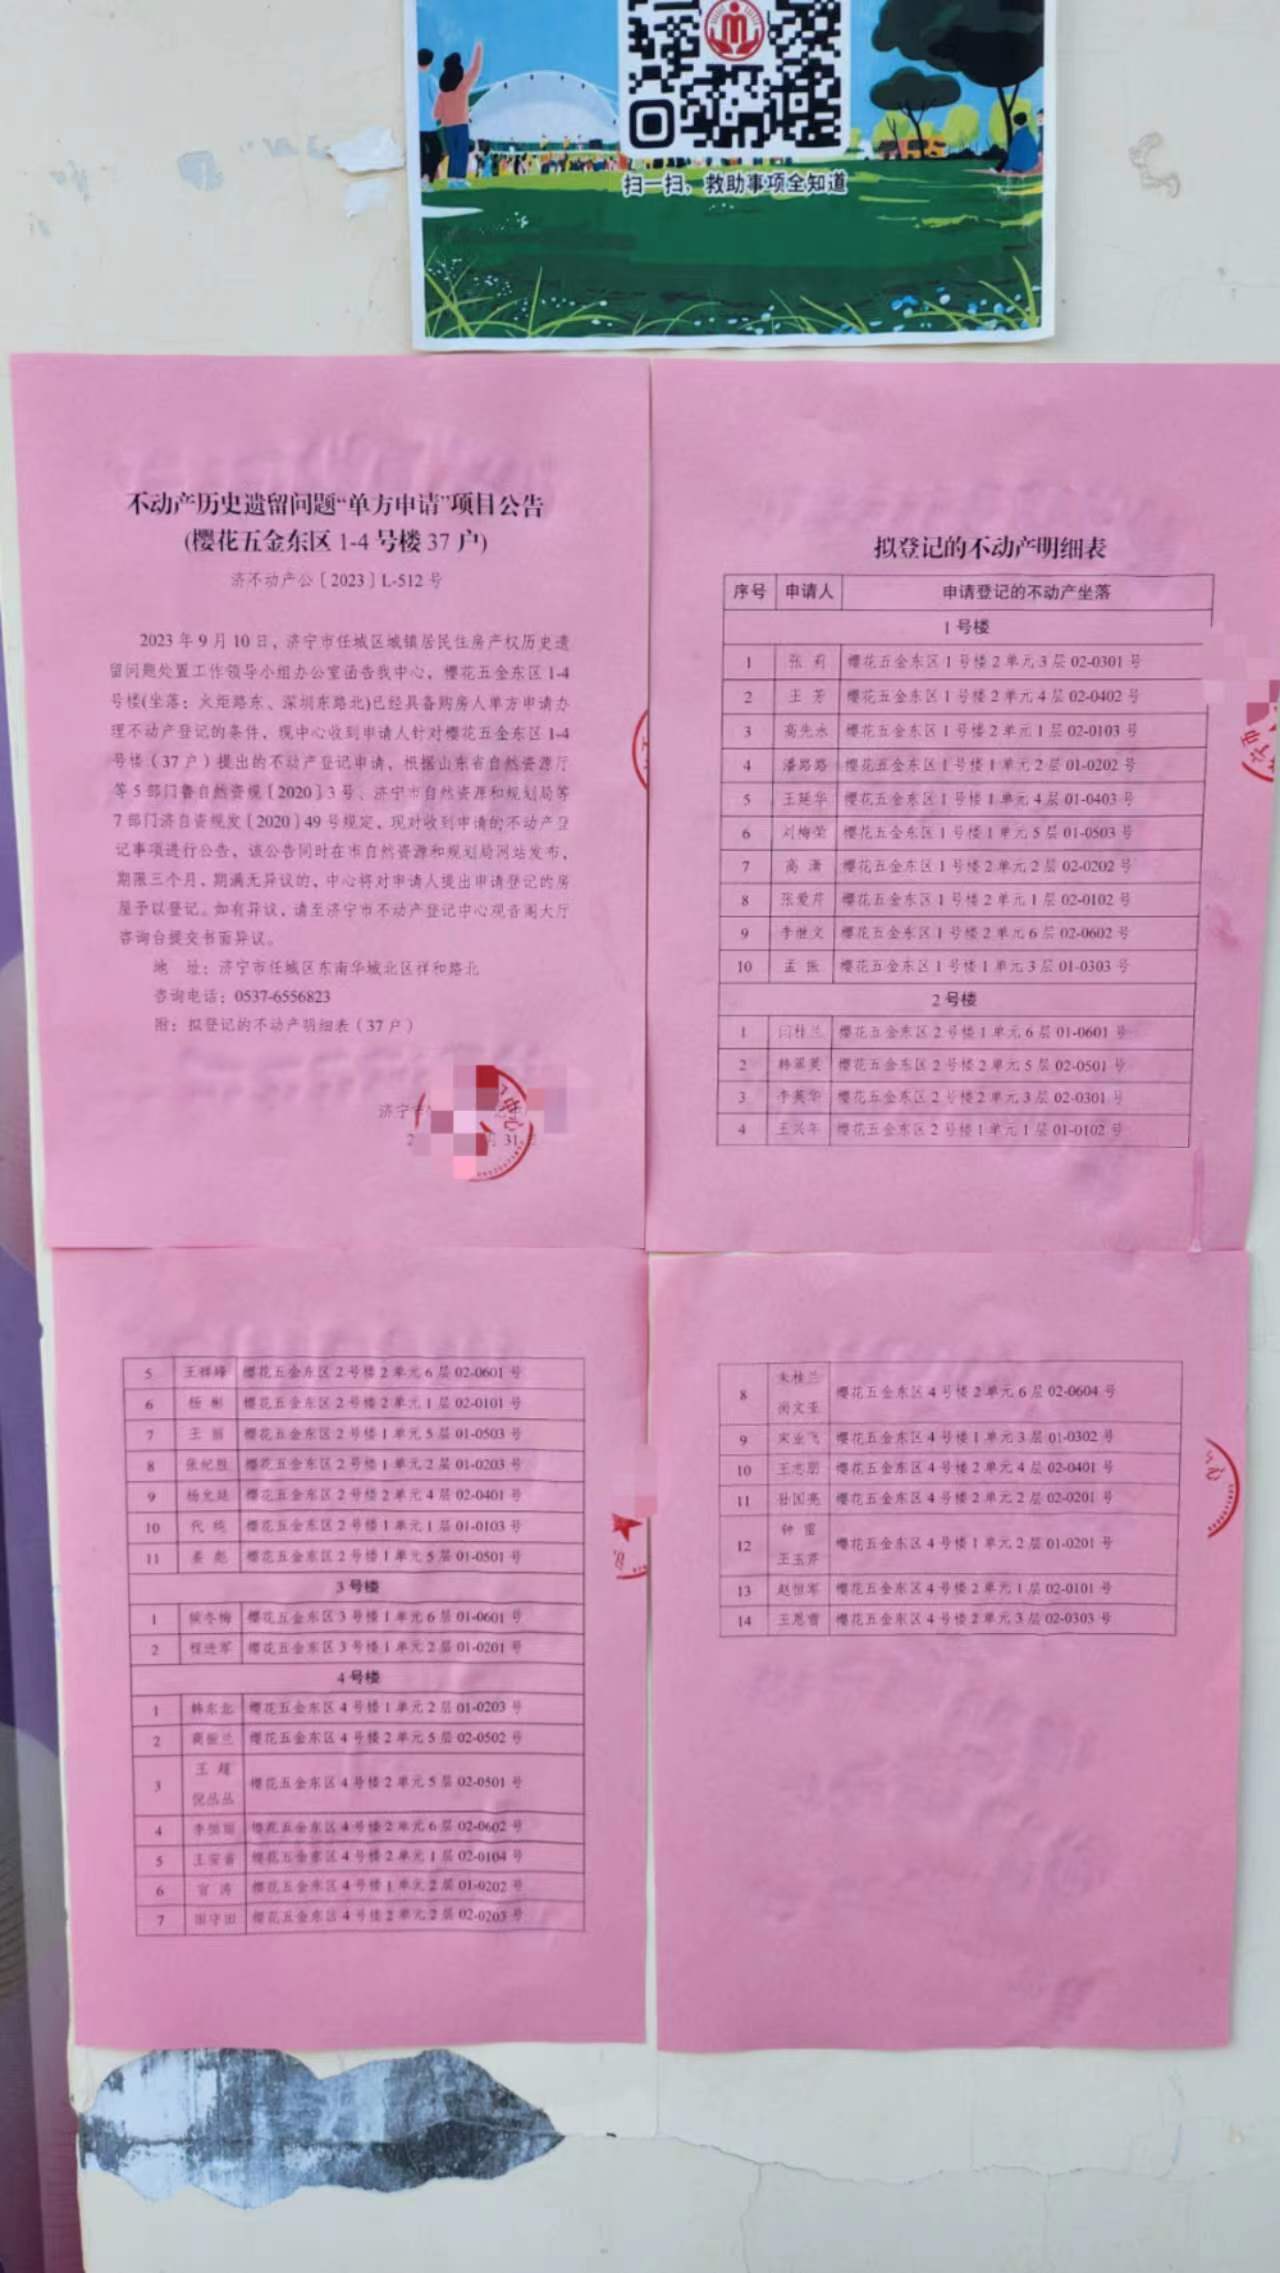 扫一扫，救助事项全知道
不动产历史遗留问题“单方申请”项目公告
(樱花五金东区 1-4 号楼 37 户)
济不动产公〔2023〕L-512 号
2023 年 9 月 10 日，济宁市任城区城镇居民住房产权历史遗
留问题处置工作领导小组办公室函告我中心，樱花五金东区 1-4
号楼(坐落：火炬路东、深圳东路北)已经具备购房人单方申请办
理不动产登记的条件，现中心收到申请人针对樱花五金东区 1-4
号楼（37 户）提出的不动产登记申请，根据山东省自然资源厅
等 5 部门鲁自然资规〔2020〕3 号、济宁市自然资源和规划局等
7 部门济自资规发〔2020〕49 号规定，现对收到申请的不动产登
记事项进行公告，该公告同时在市自然资源和规划局网站发布，
期限三个月，期满无异议的，中心将对申请人提出申请登记的房
屋予以登记。如有异议，请至济宁市不动产登记中心观音阁大厅
咨询台提交书面异议。
地 址：济宁市任城区东南华城北区祥和路北
咨询电话：0537-6556823
附：拟登记的不动产明细表（37 户）
济宁市
31
拟登记的不动产明细表
序号 申请人 申请登记的不动产坐落
1 号楼
1 张 莉 樱花五金东区 1 号楼 2 单元 3 层 02-0301 号
2 王 芳 樱花五金东区 1 号楼 2 单元 4 层 02-0402 号
3 高先水 樱花五金东区 1 号楼 2 单元 1 层 02-0103 号
4 潘路路 樱花五金东区 1 号楼 1 单元 2 层 01-0202 号
5 王延华 樱花五金东区 1 号楼 1 单元 4 层 01-0403 号
6 刘梅荣 樱花五金东区 1 号楼 1 单元 5 层 01-0503 号
7 高 潇 樱花五金东区 1 号楼 2 单元 2 层 02-0202 号
8 张爱芹 樱花五金东区 1 号楼 2 单元 1 层 02-0102 号
9 李继文 樱花五金东区 1 号楼 2 单元 6 层 02-0602 号
10 孟 振 樱花五金东区 1 号楼 1 单元 3 层 01-0303 号
2 号楼
1 闫桂兰 樱花五金东区 2 号楼 1 单元 6 层 01-0601 号
2 韩翠英 樱花五金东区 2 号楼 2 单元 5 层 02-0501 号
3 李英华 樱花五金东区 2 号楼 2 单元 3 层 02-0301 号
4 王兴年 樱花五金东区 2 号楼 1 单元 1 层 01-0102 号
5 王祥峰 樱花五金东区 2 号楼 2 单元 6 层 02-0601 号
6 杨 彬 樱花五金东区 2 号楼 2 单元 1 层 02-0101 号
7 王 丽 樱花五金东区 2 号楼 1 单元 5 层 01-0503 号
8 张纪胜 樱花五金东区 2 号楼 1 单元 2 层 01-0203 号
9 樱花五金东区 2 号楼 2 单元 4 层 02-0401 号
10 代 纯 樱花五金东区 2 号楼 1 单元 1 层 01-0103 号
11 樱花五金东区 2 号楼 1 单元 5 层 01-0501 号
3 号楼
1 侯冬梅 樱花五金东区 3 号楼 1 单元 6 层 01-0601 号
2 程进军 樱花五金东区 3 号楼 1 单元 2 层 01-0201 号
4 号楼
1 韩东北 樱花五金东区 4 号楼 1 单元 2 层 01-0203 号
2 樱花五金东区 4 号楼 2 单元 5 层 02-0502 号
3 王 超
倪丛丛 樱花五金东区 4 号楼 2 单元 5 层 02-0501 号
4 樱花五金东区 4 号楼 2 单元 6 层 02-0602 号
5 樱花五金东区 4 号楼 2 单元 1 层 02-0104 号
6 樱花五金东区 4 号楼 1 单元 2 层 01-0202 号
7 田守田 樱花五金东区 4 号楼 2 单元 2 层 02-0203 号
8 朱桂兰
闵文亚 樱花五金东区 4 号楼 2 单元 6 层 02-0604 号
9 宋业飞 樱花五金东区 4 号楼 1 单元 3 层 01-0302 号
10 王志朋 樱花五金东区 4 号楼 2 单元 4 层 02-0401 号
11 樱花五金东区 4 号楼 2 单元 2 层 02-0201 号
12 钟 雷
王玉芹 樱花五金东区 4 号楼 1 单元 2 层 01-0201 号
13 赵恒军 樱花五金东区 4 号楼 2 单元 1 层 02-0101 号
14 王恩雷 樱花五金东区 4 号楼 2 单元 3 层 02-0303 号